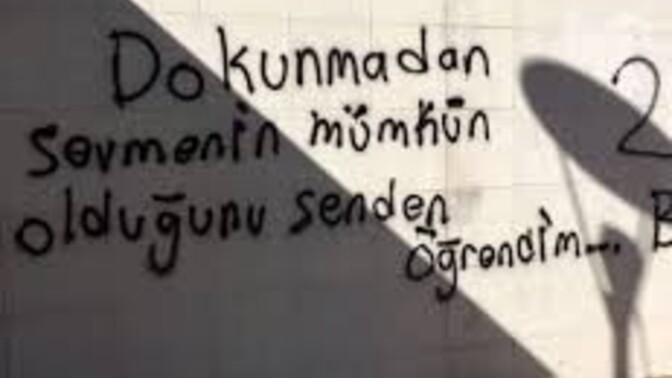 Dokunmadan
sevmenin mümkün
olduğunu senden
öğrendim...
2
B